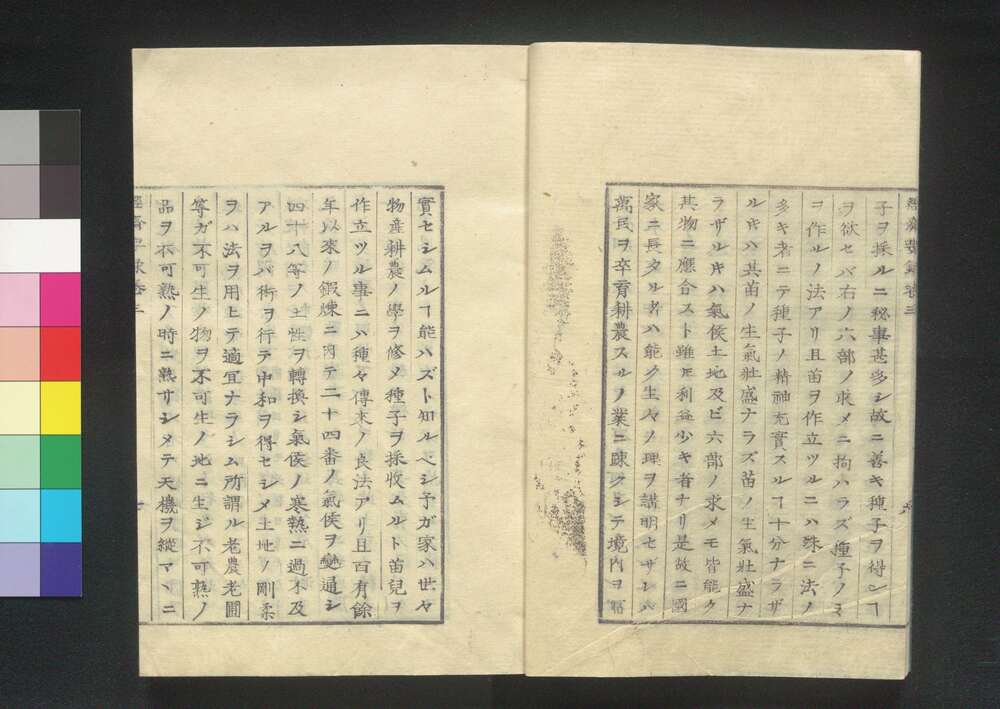 子ヲ採ルニ秘事甚多シ故ニ善キ種子ヲ得ンヿ
ヲ欲セバ右ノ六部ノ求メニ拘ハラズ種子ノミ
ヲ作ルノ法アリ且苗ヲ作立ツルニハ殊ニ法ノ
多キ者ニテ種子ノ精神充實スルヿ十分ナラザ
ル片ハ其苗ノ生氣壯盛ナラズ苗ノ生氣壯盛ナ
ラザル片ハ氣候土地及ビ六部ノ求メモ皆能ク
其物ニ應合スト雖𪜈利益少キ者ナリ是故ニ國
家ニ長タル者ハ能ク生々ノ理ヲ講明セザレハ
萬民ヲ卒育耕農スルノ業ニ疎クシテ境内ヲ富
實セシムルヿ能ハズト知ルベシ予ガ家ハ世々
物産耕農ノ學ヲ修メ種子ヲ採收ムルト苗兒ヲ
作立ツル事ニハ種々傳来ノ良法アリ且百有餘
年以來ノ鍛煉ニ內テ二十四番ノ氣候ヲ變通シ
四十八等ノ土性ヲ轉換シ氣候ノ寒熱ニ過不及
アルヲバ術ヲ行テ中和ヲ得セシメ土地ノ剛柔
ヲハ法ヲ用ヒテ適宜ナラシム所謂ル老農老圃
等ガ不可生ノ物ヲ不可生ノ地ニ生ジ不可熟ノ
品ヲ不可熟ノ時ニ熟サシメテ天機ヲ縱マヽニ